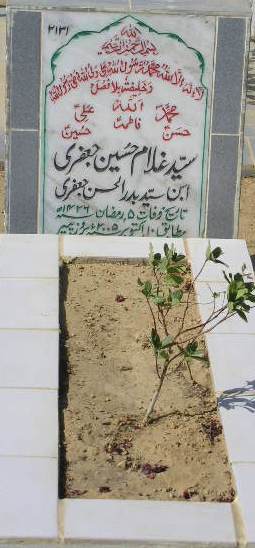 ۲۱۳۱
بسم اللہ الرحمن الرحیم
لا الہ الا اللہ محمد رسول اللہ علی ولی اللہ وصی رسول اللہ
وخلیفتہ بلا فصل
اللہ
محمد فاطمہ علی
حسن حسین
سید غلام حسین جعفری
ابن سید بدر الحسن جعفری
تاریخ وفات ۵ رمضان ۱۴۲۶ھ
مطابق ۱۰ اکتوبر ۲۰۰۵ء بروز پیر